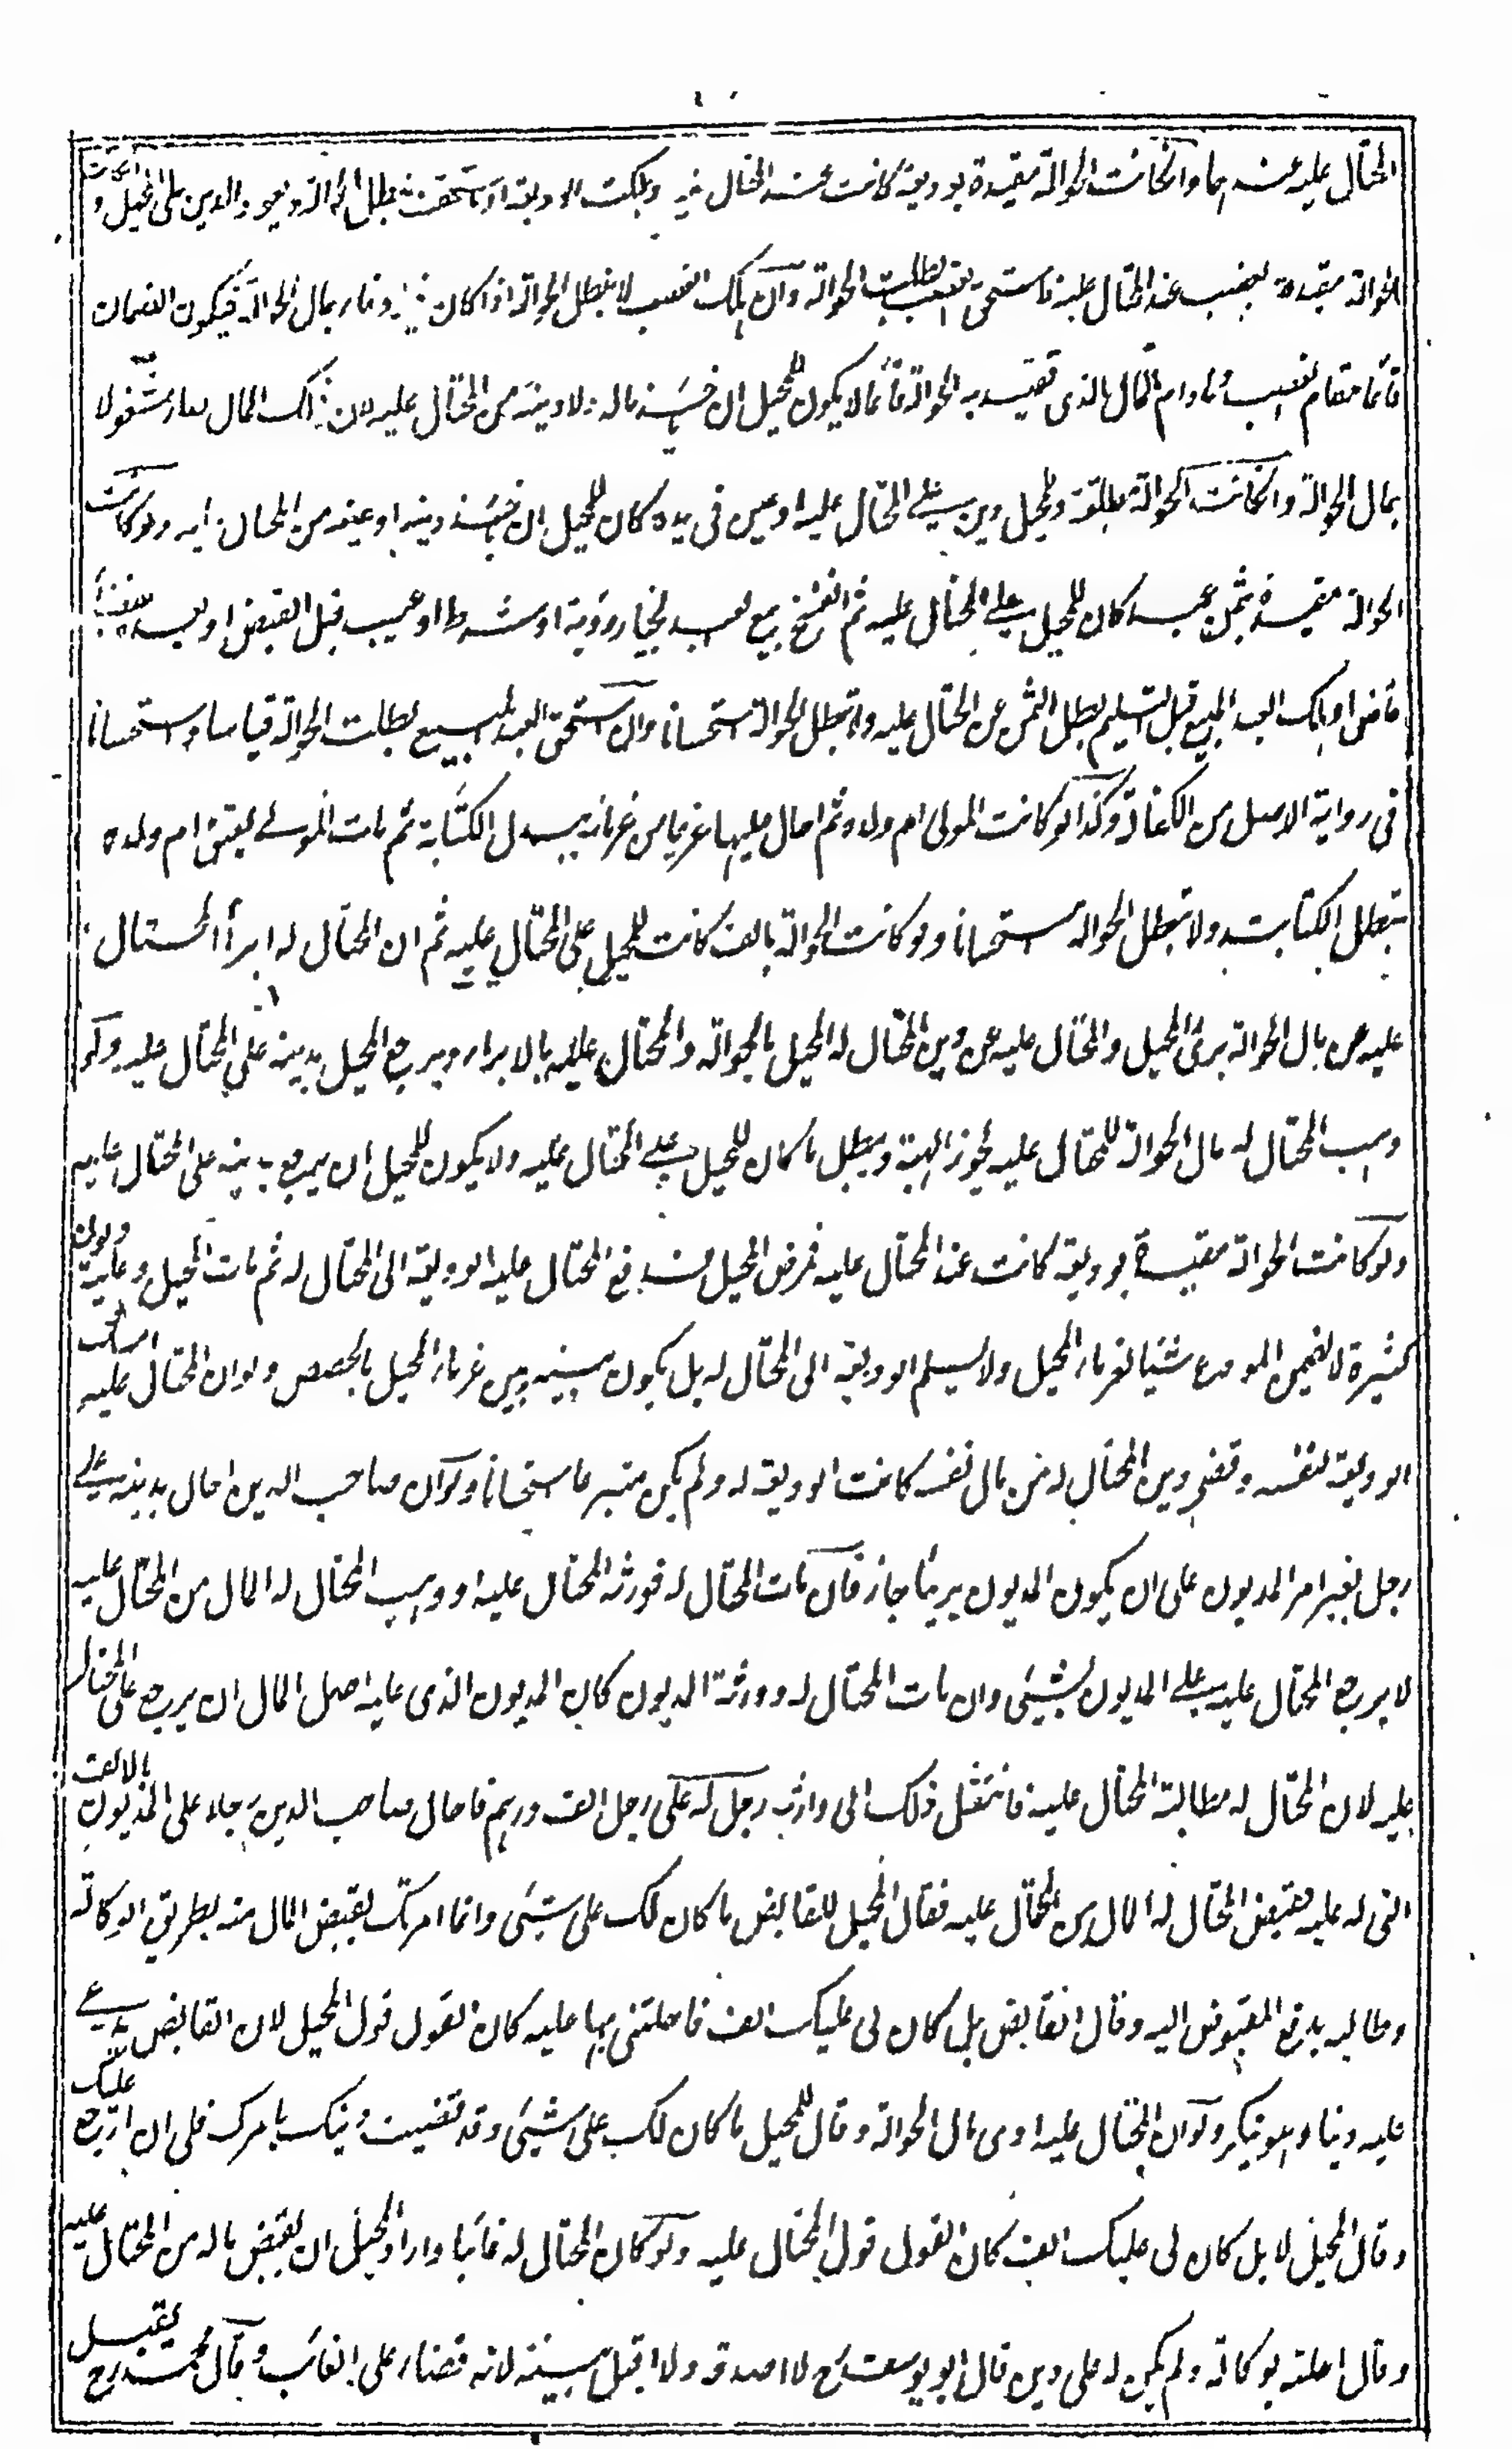 المحتال عليه عندهما وان كانت الحوالة مقيدة بوديعة كانت عند المحتال عليه وهلكت الوديعة او استحقت تبطل الحوالة ويعود الدين على المحيل وان كانت
الحوالة مقيدة بغصب عند المحتال عليه فاستحق الغصب بطلت الحوالة وان هلك الغصب لا تبطل الحوالة اذا كان فيه وفاء بمال الحوالة فيكون الضمان
قائما مقام الغصب وما دام المال الذى تقيدت به الحوالة قائما لا يكون للمحيل ان ياخذ ماله ولا دينه من المحتال عليه لان ذلك المال صار مشغولا
بمال الحوالة وان كانت الحوالة مطلقة وللمحيل دين على المحتال عليه او عين فى يده كان للمحيل ان ياخذ دينه او عينه من المحتال عليه ولو كانت
الحوالة مقيدة بثمن عبد كان للمحيل على المحتال عليه ثم انفسخ بيع العبد بخيار رؤية او شرط او عيب قبل القبض او بعده بقضاء
قاض او هلك العبد المبيع قبل التسليم بطل الثمن عن المحتال عليه ولا تبطل الحوالة استحسانا وان استحق العبد المبيع بطلت الحوالة قياسا واستحسانا
فى رواية الاصل من الكفالة وكذا لو كاتب المولى ام ولده ثم احال عليها غريما من غرمائه ببدل الكتابة ثم مات المولى تعتق ام ولده
تبطل الكتابة ولا تبطل الحوالة استحسانا ولو كانت الحوالة بالف كانت للمحيل على المحتال عليه ثم ان المحتال له ابرأ المحتال
عليه من مال الحوالة برئ المحيل والمحتال عليه عن دين المحتال له المحيل بالحوالة والمحتال عليه بالابراء ويرجع المحيل بدينه على المحتال عليه ولو
وهب المحتال له مال الحوالة للمحتال عليه تجوز الهبة ويبطل ما كان للمحيل على المحتال عليه ولا يكون للمحيل ان يرجع بدينه على المحتال عليه
ولو كانت الحوالة مقيدة بوديعة كانت عند المحتال عليه فمرض المحيل فدفع المحتال عليه الوديعة الى المحتال له ثم مات المحيل وعليه ديون
كثيرة لا يضمن المودع شيئا لغرماء المحيل ولا يسلم الوديعة الى المحتال له بل يكون بينه وبين غرماء المحيل بالحصص ولو ان المحتال عليه امسك
الوديعة لنفسه وقضى دين المحتال له من مال نفسه كانت الوديعة له ولم يكن متبرعا استحسانا ولو ان صاحب الدين احال بدينه على
رجل بغير امر المديون على ان يكون المديون بريئا جاز فان مات المحتال له فورثه المحتال عليه او وهب المحتال له المال من المحتال عليه
لا يرجع المحتال عليه على المديون بشيئ وان مات المحتال له وورثه المديون كان المديون الذى عليه اصل المال ان يرجع على المحتال
عليه لان المحتال له مطالبة المحتال عليه فانتقل ذلك الى وارثه رجل له على رجل الف درهم فاحال صاحب الدين رجلا على المديون بالالف
التى له عليه فقبض المحتال له المال من المحتال عليه فقال المحيل للقابض ما كان لك على شيئ وانما امرتك بقبض المال منه بطريق الوكالة
وطالبه بدفع المقبوض اليه وقال القابض بل كان لى عليك الف فاحلتنى بها عليه كان القول قول المحيل لان القابض يدعى
عليه دينا وهو ينكر ولو ان المحتال عليه ادى مال الحوالة وقال للمحيل ما كان لك على شيئ وقد قضيت دينك بامرك فلى ان ارجع عليك
وقال المحيل لا بل كان لى عليك الف كان القول قول المحتال عليه ولو كان المحتال له غائبا واراد المحيل ان يقبض ماله من المحتال عليه
وقال احلته بوكالة ولم يكن له على دين قال ابو يوسف رح لا اصدقه ولا اقبل بينته لانه قضاء على الغائب وقال محمد رح يقبل